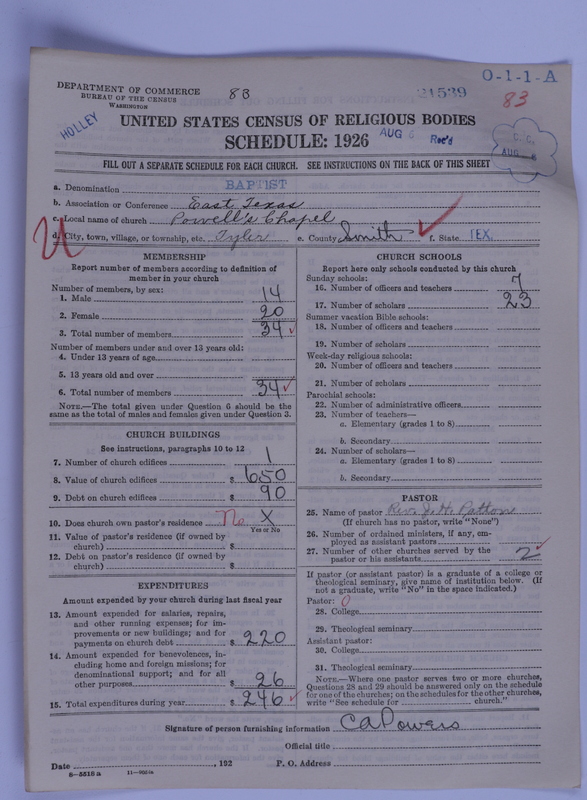 DEPARTMENT OF COMMERCE
BUREAU OF THE CENSUS
WASHINGTON
83
21539
O-1-1-A
83
HOLLEY
UNITED STATES CENSUS OF RELIGIOUS BODIES
SCHEDULE: 1926
AUG 6 Rec'd
AUG
FILL OUT A SEPARATE SCHEDULE FOR EACH CHURCH. SEE INSTRUCTIONS ON THE BACK OF THIS SHEET
a. Denomination BAPTIST
b. Association or Conference East Texas
c. Local name of church Powell's Chapel
d. City, town, village, or township, etc. Tyler e. County Smith f. State TEX.
MEMBERSHIP
Report number of members according to definition of
member in your church
Number of members, by sex:
1. Male 14
2. Female 20
3. Total number of members 34
Number of members under and over 13 years old:
4. Under 13 years of age
5. 13 years old and over
6. Total number of members 34
NOTE.—The total given under Question 6 should be the
same as the total of males and females given under Question 3.
CHURCH BUILDINGS
See instructions, paragraphs 10 to 12
7. Number of church edifices 1
8. Value of church edifices $ 650
9. Debt on church edifices $ 90
10. Does church own pastor's residence No X
Yes or No
11. Value of pastor's residence (if owned by
church) $
12. Debt on pastor's residence (if owned by
church) $
EXPENDITURES
Amount expended by your church during last fiscal year
13. Amount expended for salaries, repairs,
and other running expenses; for im-
provements or new buildings; and for
payments on church debt $ 220
14. Amount expended for benevolences, in-
cluding home and foreign missions; for
denominational support; and for all
other purposes $ 26
15. Total expenditures during year $ 246
CHURCH SCHOOLS
Report here only schools conducted by this church
Sunday schools:
16. Number of officers and teachers 7
17. Number of scholars 23
Summer vacation Bible schools:
18. Number of officers and teachers
19. Number of scholars
Week-day religious schools:
20. Number of officers and teachers
21. Number of scholars
Parochial schools:
22. Number of administrative officers
23. Number of teachers—
a. Elementary (grades 1 to 8)
b. Secondary
24. Number of scholars—
a. Elementary (grades 1 to 8)
b. Secondary
PASTOR
25. Name of pastor Rev. J. H. Patton
(If church has no pastor, write "None")
26. Number of ordained ministers, if any, em-
ployed as assistant pastors
27. Number of other churches served by the
pastor or his assistants 2
If pastor (or assistant pastor) is a graduate of a college or
theological seminary, give name of institution below. (If
not a graduate, write "No" in the space indicated.)
Pastor: 0
28. College
29. Theological seminary
Assistant pastor:
30. College
31. Theological seminary
NOTE.—Where one pastor serves two or more churches,
Questions 28 and 29 should be answered only on the schedule
for one of the churches; on the schedules for the other churches,
write "See schedule for church."
Signature of person furnishing information CA Powers
Official title
Date , 192 P. O. Address
8-5518 a